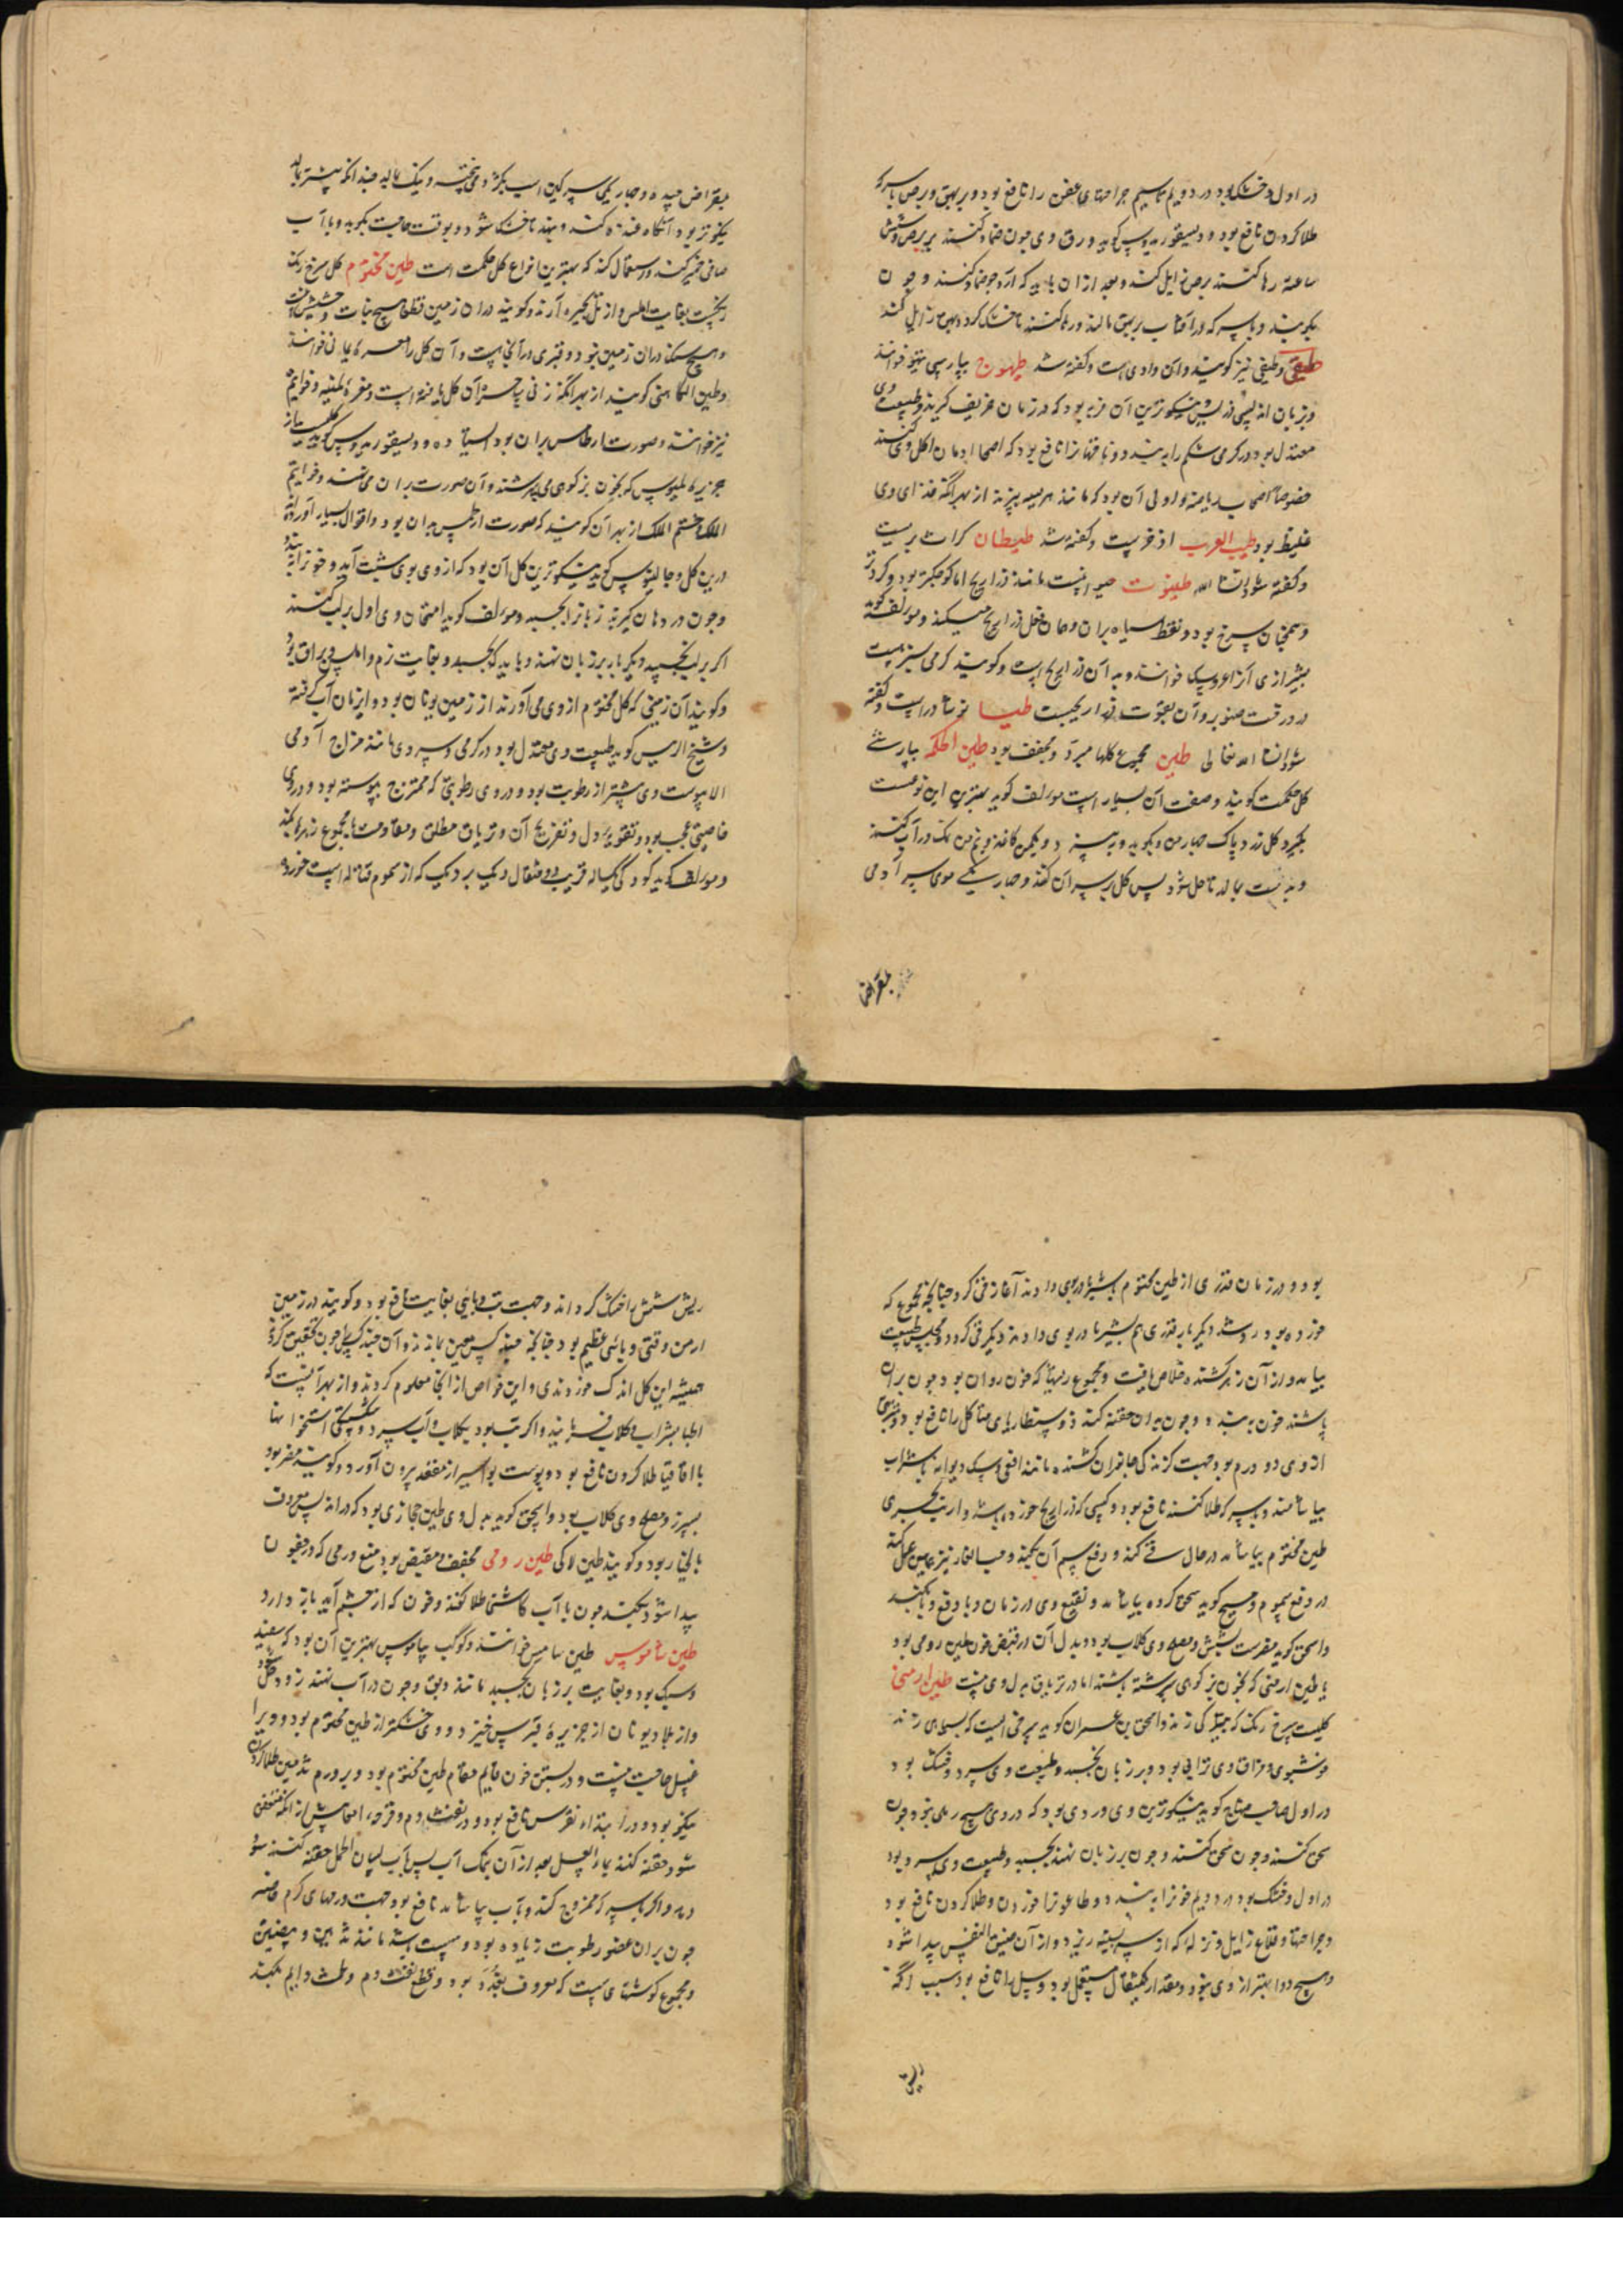 در اول و خشک بود در دویم تا سیم جراحتهای عفن را نافع بود و بر بهق و برص با سرکه
طلا کردن نافع بود و دیسقوریدوس گوید ورق وی چون ضماد کنند بر برص و شش
ساعت رها کنند برص زایل کند و بعد از آن باید که آرد جو ضماد کنند و چون
بکوبند و با سرکه در آفتاب بر بهق مالند و رها کنند تا خشک گردد بهق زایل کند
طیقی و طیفی نیز گویند و آن دادی است و گفته شد طیهوج بپارسی تیهو خوانند
و بزبان اندلسی نیکوترین آن فربه بود که در زمان خریف گیرند و طبیعت وی
معتدل بود در گرمی شکم را ببندد و ناقهانرا نافع بود که اصحا ادمان اکل وی کنند
خصوصا اصحاب ریاضت و اولی آن بود که مانند هریسه بپزند از بهر آنکه غذای وی
غلیظ بود طیب العرب اذخرست و گفته شد طیطان کراث بریست
و گفته شود انشا الله طیثوت حیوانیست مانند ذراریح اما کوچکتر بود و گردتر
و همچنان سرخ بود و نقطهٔ سیاه بران و همان فعل ذراریح میکند و مولف گوید
بشیرازی آنرا عروسک خوانند و بد آن ذراریح است و گویند کرمی سبزست
در درخت صنوبر و آن بقوت ذراریحست طیسا نوشادر است و گفته
شود انشا الله تعالی طین مجموع گلها مبرد و مجفف بود طین الحکمه بپارسی
گل حکمت گویند و صفت آن بسیار است مولف گوید بهترین این نوعست
بگیرد گل زرد پاک چهار من و بکوبد و ببیزد و یکمن کاغذ و نیم من نمک در آب کنند
و بدست بمالد تا حل شود پس گل بر سر آن کند و چهار یکی موی سر آدمی
بمقراض
بمقراض چیده و چهار یکی سرگین اسب بکوبد و بیخته و نیک بمالید چندانکه بیشتر مالند
نیکوتر بود آنگاه قندها کنند و بنهند تا خشک شود و بوقت حاجت بکوبد و با آب
صافی خمیر کند و استعمال کند که بهترین انواع گل حکمت است طین مختوم گل سرخ رنگ
است بغایت املس و از تل بحیره آرند و گویند در ان زمین قطعا هیچ نبات و حشیش نیست
و هیچ سنگ در ان زمین نبود و قبری در آنجاست و آن گل را مغرهٔ یمانی خوانند
و طین الکاهنی گویند از بهر آنکه زنی ساحره آن گل یافته است و مغرهٔ لمنیه و خواتیم
نیز خوانند و صورت ارطامس بران بود و دیسقوریدوس گوید گلیست از
جزیرهٔ لمیوس که بخون بز کوهی می سرشند و آن صورت بران می نهند و خواتیم
الملک و ختم الملک از بهر آن گویند که صورت ارطمس بدان بود و اقوال بسیار آورده اند
درین گل و جالینوس گوید نیکوترین گل آن بود که از وی بوی شبت آید و خون را ببندد
و چون در دهان گیرند زبانرا بچسبد و مولف گوید امتحان وی اول بر لب کنند
اگر بر لب بچسبد دیگر بار بر زبان نهند و باید که بچسبد و بغایت نرم و املس و براق بود
و گویند آن زمینی که گل مختوم از وی می آورند از زمین یونان بود و این زمان آب گرفته
و شیخ الرییس گوید طبیعت وی معتدل بود در گرمی و سردی مانند مزاج آدمی
الا یبوست وی بیشتر از رطوبت بود و در وی رطوبتی که ممتزج بیوسته بود و در وی
خاصیتی عجب بود در تقویهٔ دل و تفریح آن و تریاق مطلق و مقاومت با مجموع زهرها بکند
و مولف گوید کودکی یکساله قریب دو مثقال دیک بردیک که از سموم قتاله است خورده
بود و در زمان قدری از طین مختوم بشیر مادر بوی دادند آغاز قی کرد چنانچه مجموع که
خورده بود رد شد دیگر بار قدری هم بشیر مادر بوی دادند دیگر قی کرد و مجلس طبیعت
بیامد و از آن زهر کشنده خلاص یافت و مجموع ریشها که خون روان بود چون بران
پاشند خون ببندد و چون بدان حقنه کنند ذوسنطاریای متاکل را نافع بود و شربتی
از وی دو درم بود و جهت گزندگی جانوران کشنده مانند افعی و سگ دیوانه با شراب
بیاشامند و با سرکه طلا کنند نافع بود و کسی که ذراریح خورده باشد و ارنب بحری
طین مختوم بیاشامد در حال قی کند و دفع سم آن بکند و حب الغار نیز همین عمل کند
در دفع سموم و مسیح گوید سحق کرده بیاشامد و نقیع وی در زمان وبا دفع وبا بکند
و اسحق گوید مضرست بشش و مصلح وی گلاب بود و بدل آن در قبض خون طین رومی بود
یا طین ارمنی که بخون بز کوهی سرشته باشند اما در تریاق بدل وی نیست طین ارمنی
گلیست سرخ رنگ که بتیرگی زند و اسحق بن عمران گوید سرخی است که بسیاهی زند
خوشبوی و مذاق وی ترابی بود و بر زبان بچسبد و طبیعت وی سرد و خشک بود
در اول صاحب منهاج گوید نیکوترین وی وردی بود که در وی هیچ رملی نبود چون
سحق کنند و چون سحق کنند و چون بر زبان نهند بچسبد و طبیعت وی سرد بود
در اول و خشک بود در دویم خونرا ببندد و طاعونرا خوردن و طلا کردن نافع بود
و جراحتها و قلاع زایل و نزله که از سر بسینه ریزد و از آن ضیق النفس پیدا شود
و هیچ دوا بهتر از وی نبود و مقدار یکمثقال مستعمل بود و سل را نافع بود بسبب آنکه
ریش
ریش شش را خشک گرداند و جهت تب وبایی بغایت نافع بود و گویند در زمین
ارمن وقتی وبائی عظیم بود چنانچه چند کس معین بماندند و آن چند کس را چون تحقیق کردند
همیشه این گل اندک خوردندی و این خواص از آنجا معلوم کردند و از بهر آنست که
اطبا بشراب و گلاب فرمایند و اگر تب بود بگلاب و آب سرد و شکستگی استخوانها
با اقاقیا طلا کردن نافع بود و پوست بواسیر از مقعد بیرون آورد و گویند مضر بود
بسپرز و مصلح وی گلاب بود و اسحق گوید بدل وی طین حجازی بود که در اندلس معروف
بانجبار بود و گویند طین لاکی طین رومی مجفف و مقبض بود منع ورمی که در جفون
پیدا شود بکند چون با آب کاسنی طلا کنند و خون که از چشم آید باز دارد
طین ساموس طین سامس خوانند و کوکب ساموس بهترین آن بود که سفید
و سبک بود و بغایت بر زبان بچسبد مانند دبق و چون در آب نهند زود حل شود
و از بلاد یونان از جزیرهٔ قبرس خیزد و وی خشکتر از طین مختوم بود و ویرا
غسل حاجت نیست و در بستن خون قایم مقام طین مختوم بود و بر ورم ثدیین طلا کردن
نیکو بود و در ابتداء نقرس نافع بود و در نفث دم و قرحه امعا پیش از آنکه متعفن
شود حقنه کنند بماء العسل بعد از آن بنمک آب پس بآب لسان الحمل حقنه کنند سود
دهد و اگر با سرکه ممزوج کنند و بآب بیاشامد نافع بود جهت ورمهای گرم خاصه
چون بران عضو رطوبت زیاده بود و سست باشد مانند ثدیین و بیضتین
و مجموع گوشتهای سست که معروف بغدد بود و قطع نفث دم و طمث دایم بکند